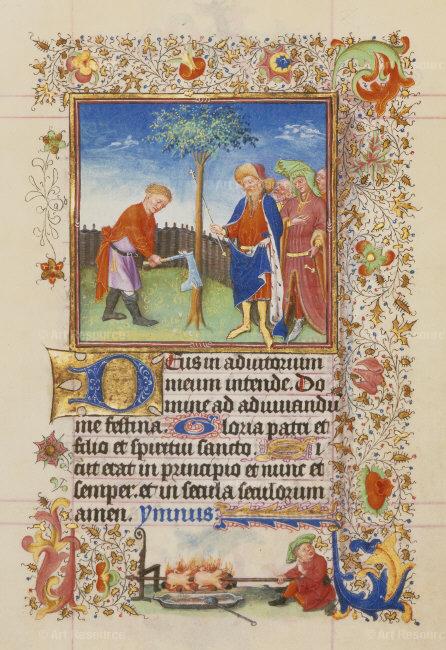 Deus in adiutorium
meum intende. Do
mine ad adiuuandu
me festina. Gloria patri et
filio et spiritui sancto. Si
cut erat in principio et nunc et
semper. et in secula seculorum
amen. ymnus
© Art Resource
© Art Resource